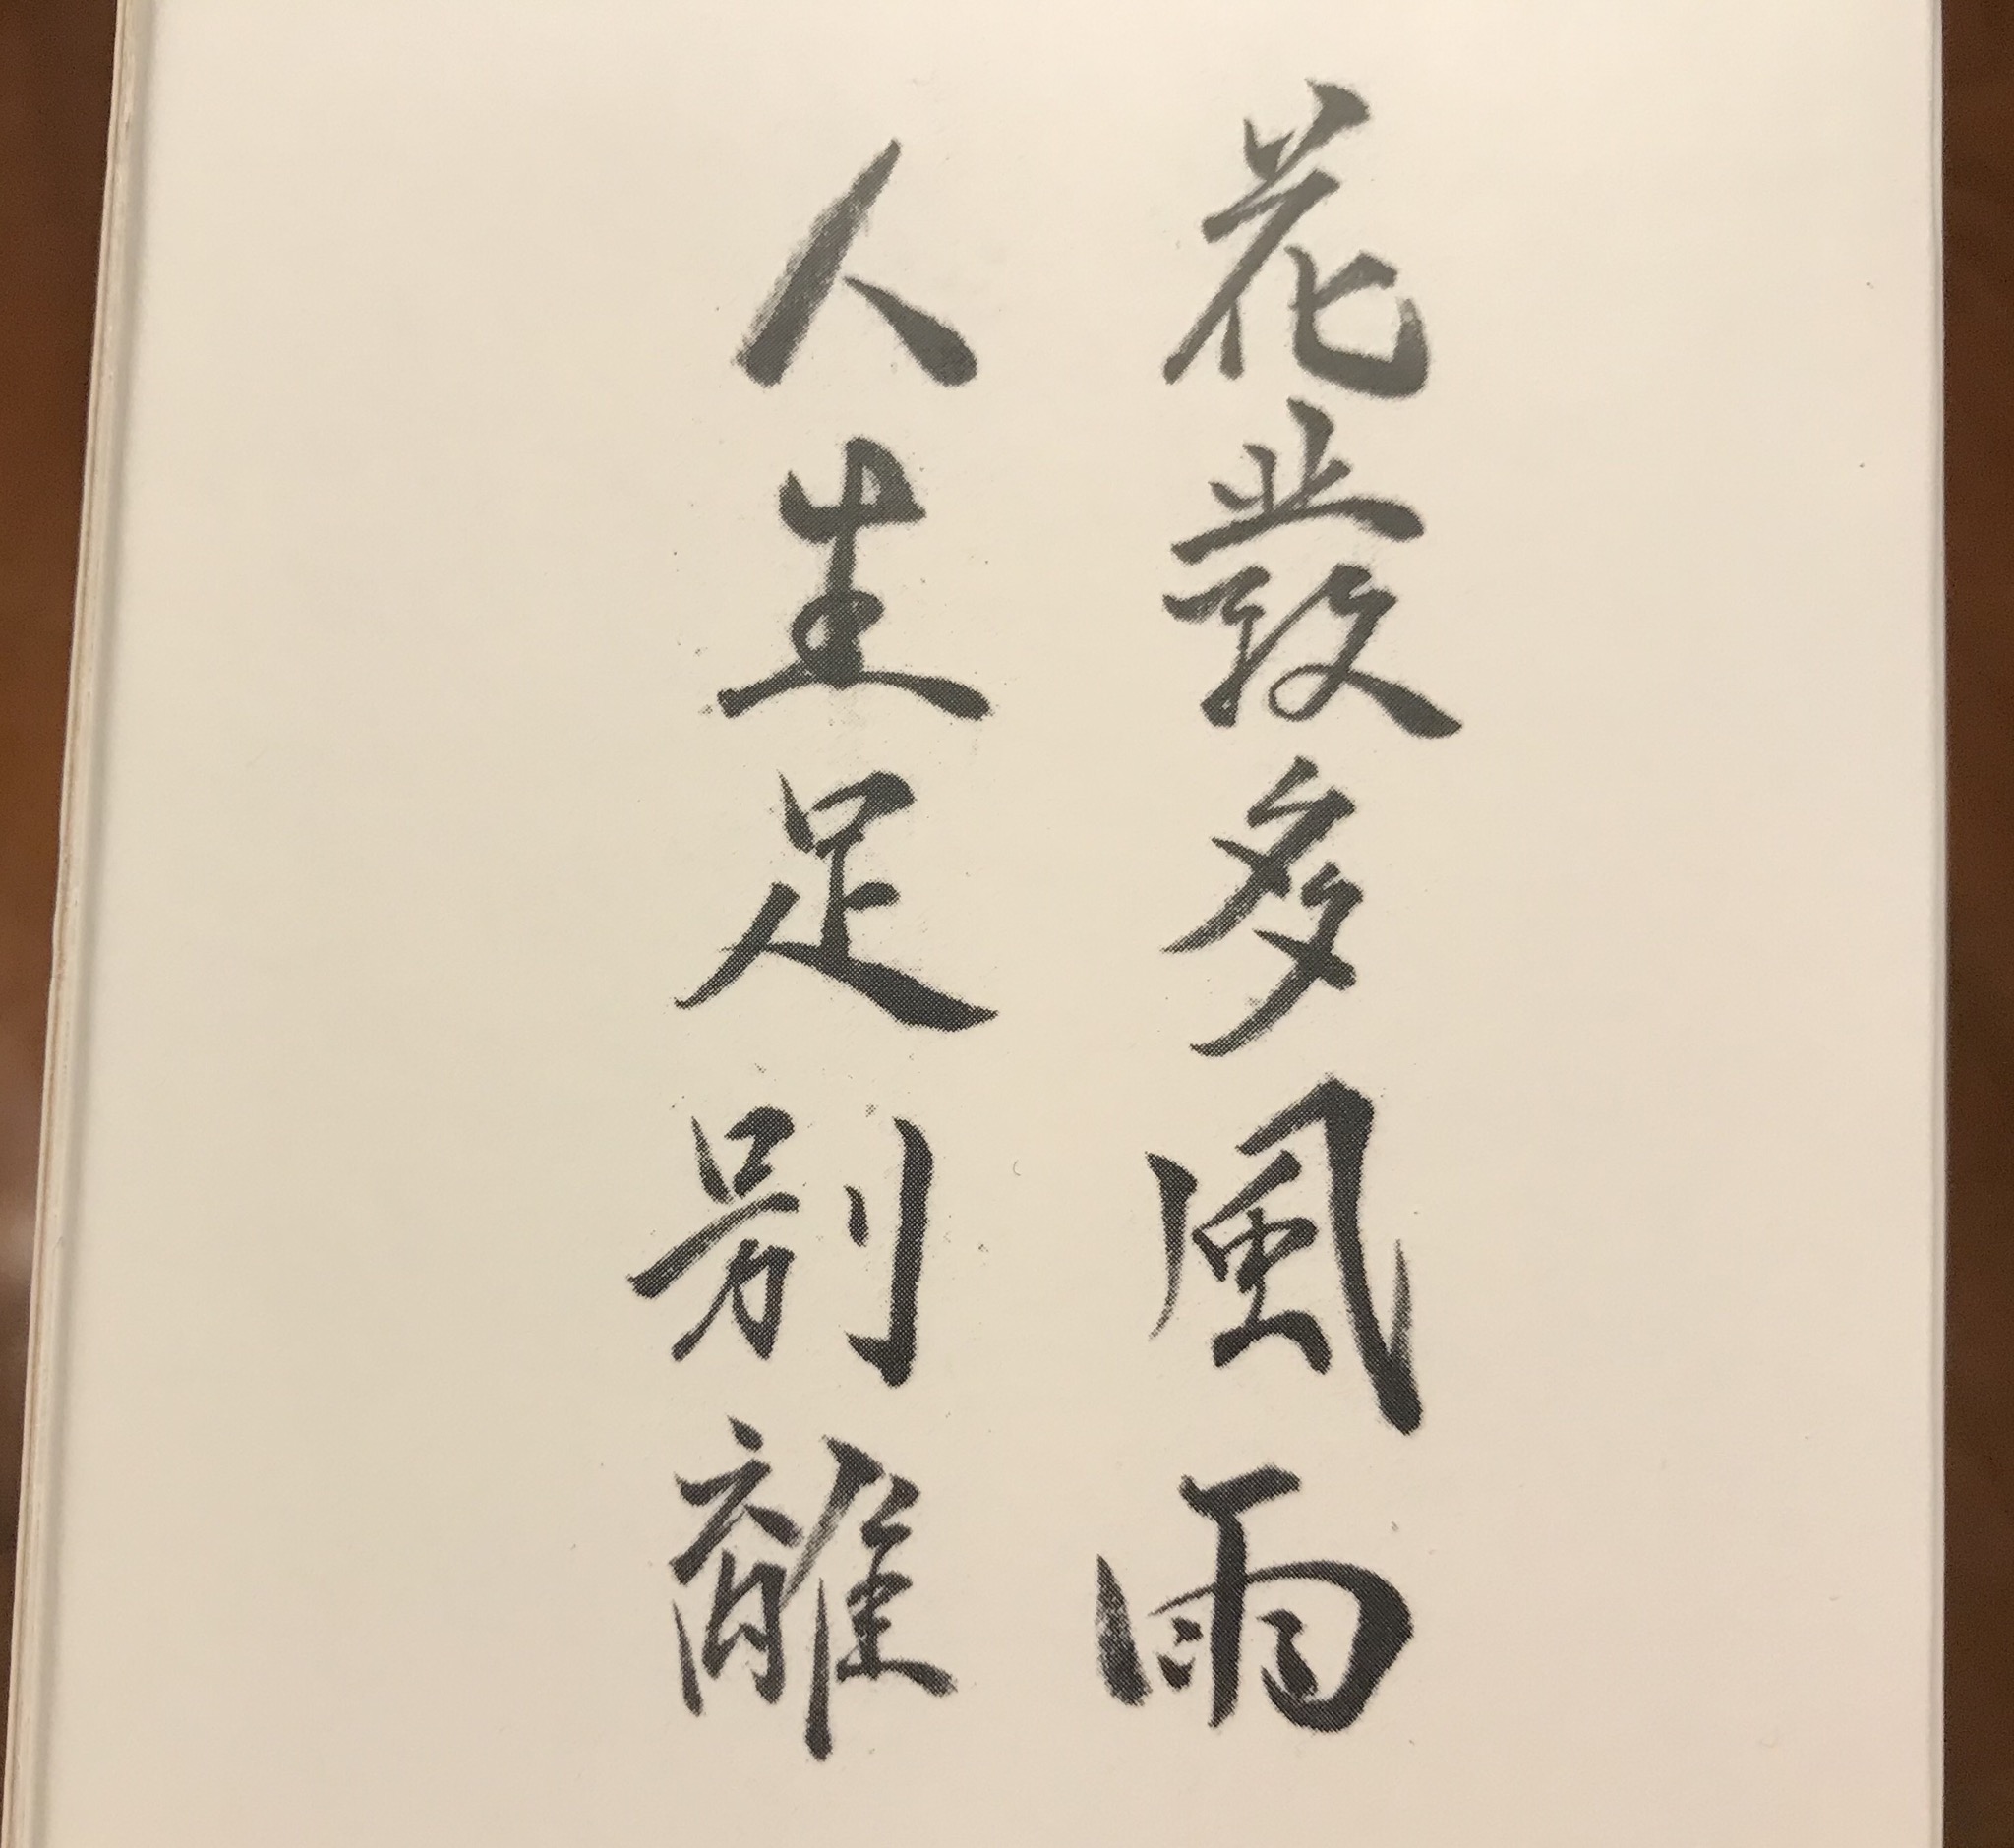 花發多風雨
人生足別離